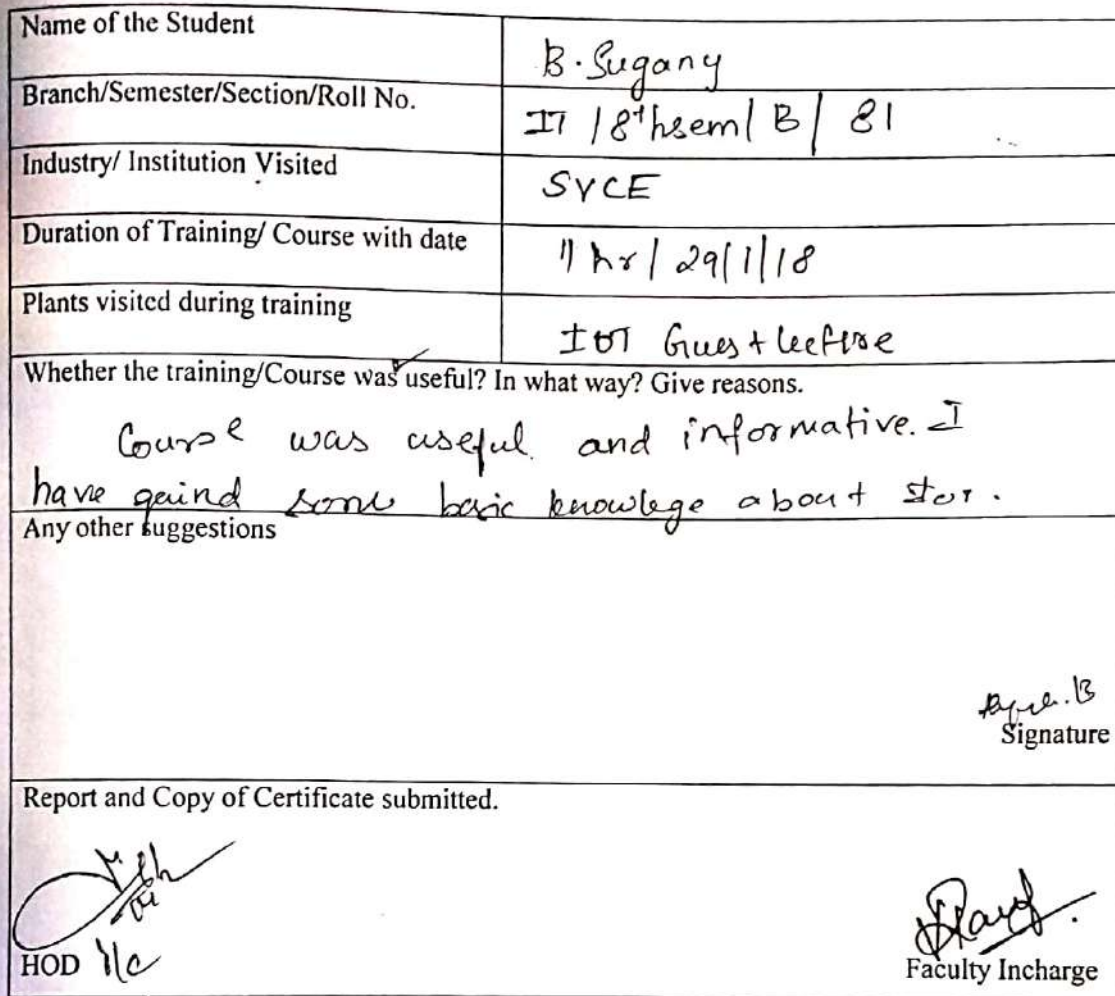 Name of the Student
B. Sugany
Branch/Semester/Section/Roll No.
IT / 8th sem / B / 81
Industry/ Institution Visited
SVCE
Duration of Training/ Course with date
1 hr / 29/1/18
Plants visited during training
IOT Guest lecture
Whether the training/Course was useful? In what way? Give reasons.
Course was useful and informative. I
have gaind some basic knowlege about
Any other suggestions
Signature
Report and Copy of Certificate submitted.
HOD I/C
Faculty Incharge